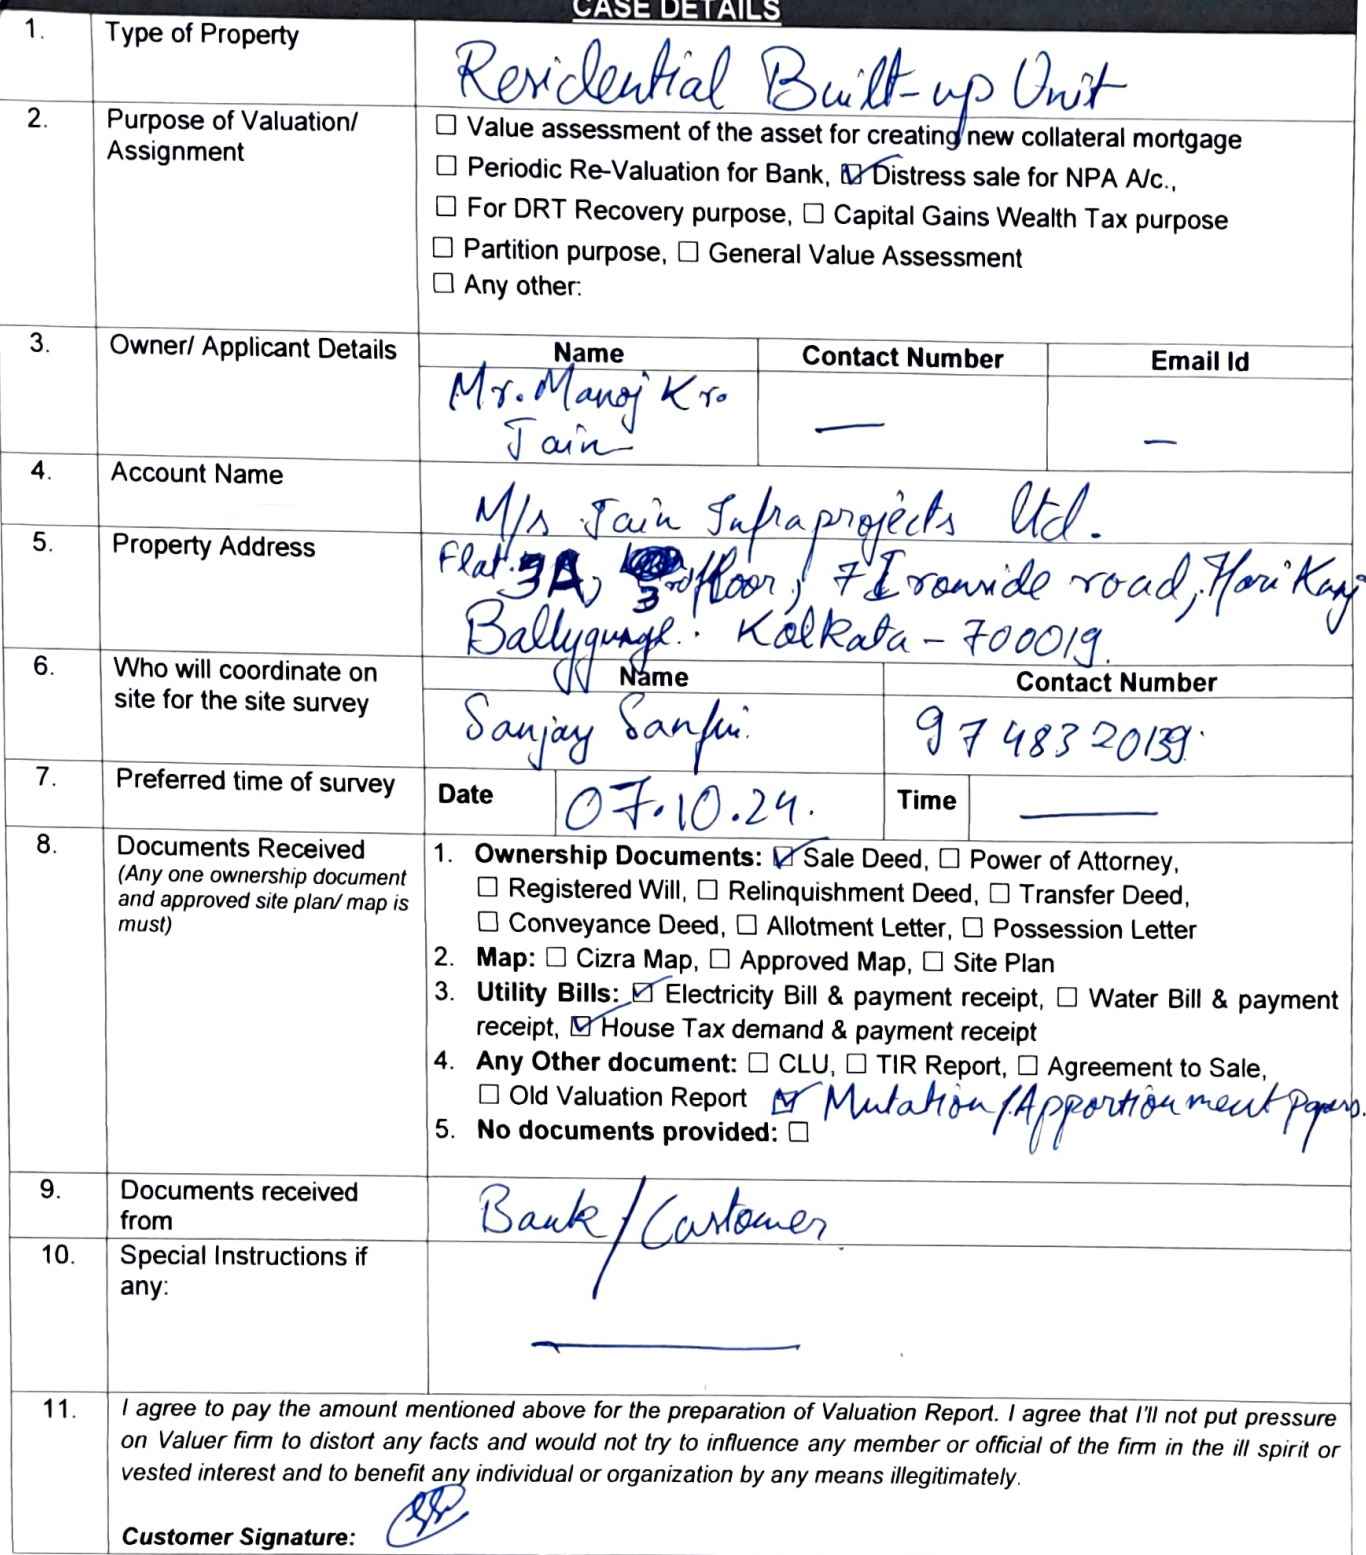 CASE DETAILS
1. Type of Property Residential Built-up Unit
2. Purpose of Valuation/ Assignment
☐ Value assessment of the asset for creating new collateral mortgage
☐ Periodic Re-Valuation for Bank, ☑ Distress sale for NPA A/c.,
☐ For DRT Recovery purpose, ☐ Capital Gains Wealth Tax purpose
☐ Partition purpose, ☐ General Value Assessment
☐ Any other:
3. Owner/ Applicant Details Name Contact Number Email Id
Mr. Manoj Kr. — —
Jain
4. Account Name M/s Jain Infraprojects Ltd.
5. Property Address Flat 3A, 3rd floor, 7 Ironside road,
Ballygunge. Kolkata - 700019.
6. Who will coordinate on Name Contact Number
site for the site survey Sanjay 9748320139
7. Preferred time of survey Date 07.10.24. Time —
8. Documents Received
(Any one ownership document
and approved site plan/ map is
must)
1. Ownership Documents: ☑ Sale Deed, ☐ Power of Attorney,
☐ Registered Will, ☐ Relinquishment Deed, ☐ Transfer Deed,
☐ Conveyance Deed, ☐ Allotment Letter, ☐ Possession Letter
2. Map: ☐ Cizra Map, ☐ Approved Map, ☐ Site Plan
3. Utility Bills: ☑ Electricity Bill & payment receipt, ☐ Water Bill & payment
receipt, ☑ House Tax demand & payment receipt
4. Any Other document: ☐ CLU, ☐ TIR Report, ☐ Agreement to Sale,
☐ Old Valuation Report ☑ Mutation/Apportionment papers.
5. No documents provided: ☐
9. Documents received
from Bank/Customer
10. Special Instructions if
any: —
11. I agree to pay the amount mentioned above for the preparation of Valuation Report. I agree that I'll not put pressure
on Valuer firm to distort any facts and would not try to influence any member or official of the firm in the ill spirit or
vested interest and to benefit any individual or organization by any means illegitimately.
Customer Signature: